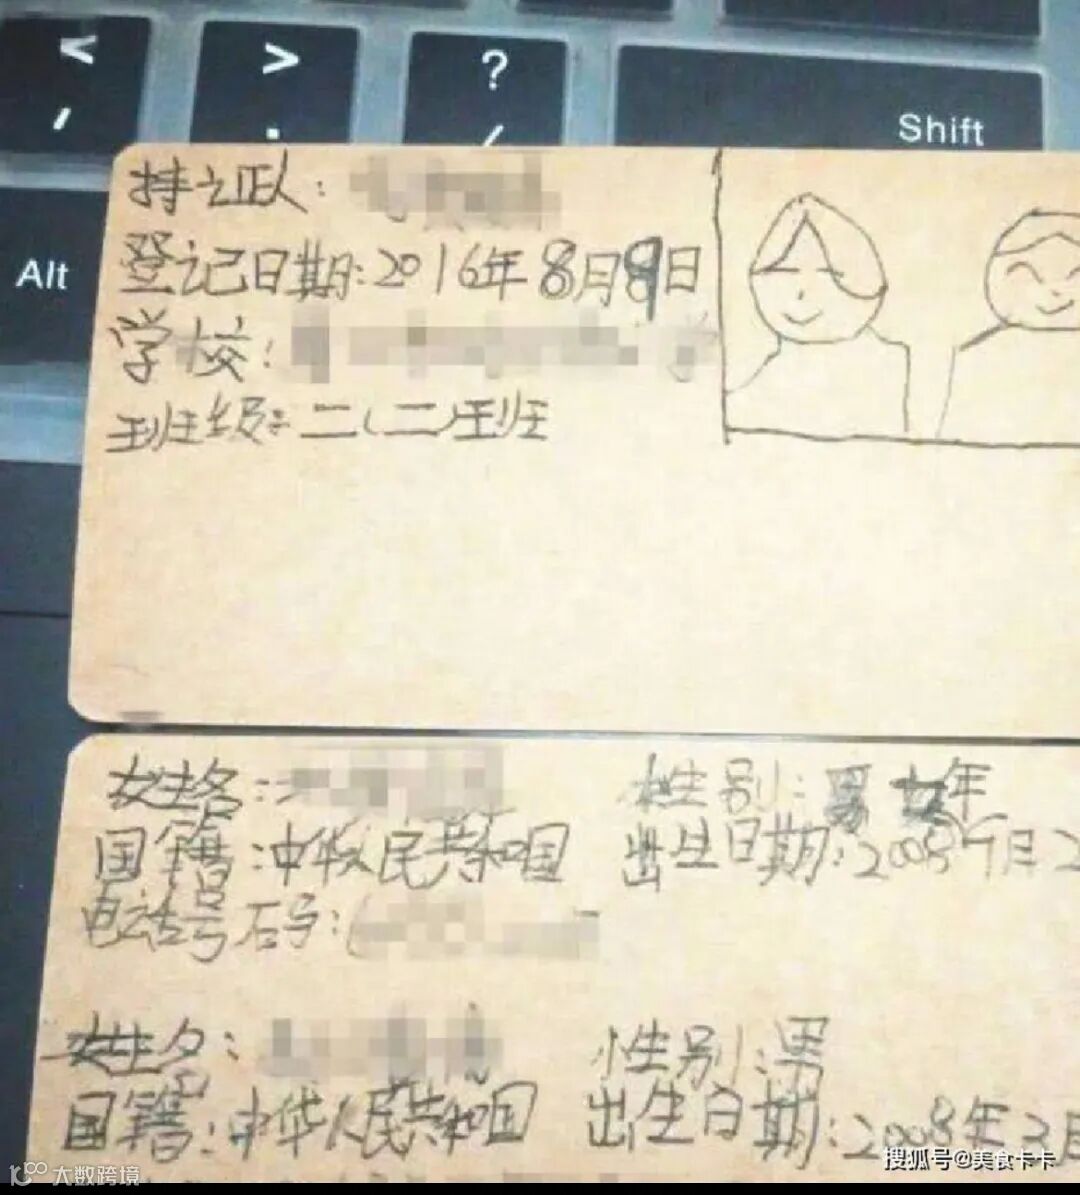 < > ?
, . / Shift
Alt
持证人:
登记日期:2016年8月9日
学校: 学
班级:二(二)班
姓名: 性别: 女年
国籍:中华人民共和国 出生日期:2008年7月2
电话号码:
姓名: 性别:男
国籍:中华人民共和国 出生日期:2008年3月
大数跨境
搜狐号@美食卡卡